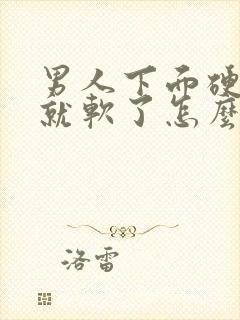 男人下面硬
就軟了怎麼
洛雷